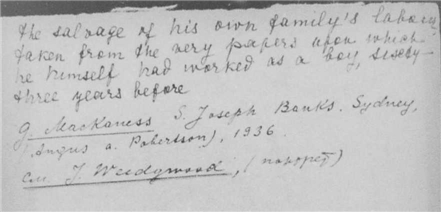 the salvage of his own family's labour,
taken from the very papers upon which
he himself had worked as a boy, sixty-
three years before
G. Mackaness S. Joseph Banks. Sydney,
(Angus a. Robertson), 1936.
см. J. Wedgwood, (поворот)